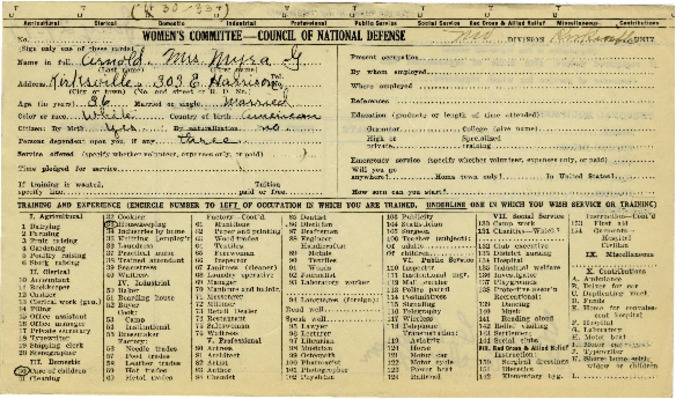 (4 30/33+)
Agricultural Clerical Domestic Industrial Professional Public Service Social Service Red Cross & Allied Relief Miscellaneous Contributions
No. WOMEN'S COMMITTEE—COUNCIL OF NATIONAL DEFENSE DIVISION UNIT
(Sign only one of these cards)
Name in full Arnold, Mrs Myra G
(Last name) (First name)
Address Kirksville, 303 E Harrison Tel. No.
(City or town) (No. and street or R. D. No.)
Age (in years) 36 Married or single Married
Color or race White Country of birth American
Citizen: By birth Yes By naturalization no
Persons dependent upon you, if any three
Service offered (specify whether volunteer, expenses only, or paid)
Time pledged for service
If training is wanted, specify line Tuition paid or free
Present occupation
By whom employed
Where employed
References
Education (graduate or length of time attended)
Grammar College (give name)
High or private Specialized training
Emergency service (specify whether volunteer, expenses only, or paid)
Will you go anywhere? Home town only? In United States?
How soon can you start?
TRAINING AND EXPERIENCE (ENCIRCLE NUMBER TO LEFT OF OCCUPATION IN WHICH YOU ARE TRAINED, UNDERLINE ONE IN WHICH YOU WISH SERVICE OR TRAINING)
I. Agricultural
1 Dairying
2 Farming
3 Fruit raising
4 Gardening
5 Poultry raising
6 Stock raising
II. Clerical
10 Accountant
11 Bookkeeper
12 Cashier
13 Clerical work (gen.)
14 Filing
15 Office assistant
16 Office manager
17 Private secretary
18 Typewriter
19 Shipping clerk
20 Stenographer
III. Domestic
30 Care of children
31 Cleaning
32 Cooking
33 Housekeeping
34 Industries by home
36 Laundress
37 Practical nurse
38 Trained attendant
39 Seamstress
40 Waitress
IV. Industrial
50 Baker
51 Boarding house
52 Buyer
Cook:
53 Camp
54 Institutional
55 Dressmaker
Factory:
56 Needle trades
57 Food trades
58 Leather trades
59 Hat trades
60 Metal trades
Factory—Cont'd
61 Munitions
62 Paper and printing
63 Wood trades
64 Textiles
65 Forewoman
66 Inspector
67 Janitress (cleaner)
68 Laundry operative
69 Manager
70 Manicure and hairdr.
71 Messenger
72 Milliner
73 Retail Dealer
74 Restaurant
75 Saleswoman
76 Waitress
V. Professional
80 Actress
81 Architect
82 Artist
83 Author
84 Chemist
85 Dentist
86 Dietitian
87 Draftsman
88 Engineer
Handicrafts:
89 Metals
90 Textiles
91 Woods
92 Journalist
93 Laboratory worker
94 Languages (foreign):
Read well
Speak well
95 Lawyer
96 Lecturer
97 Librarian
98 Musician
99 Osteopath
100 Pharmacist
101 Photographer
102 Physician
103 Publicity
104 Statistician
105 Surgeon
106 Teacher (subject):
of adults
of children
VI. Public Service
110 Inspector
111 Institutional mgr.
112 Mail carrier
113 Police guard
114 Postmistress
115 Signaling
116 Telegraphy
117 Wireless
118 Telephone
Transportation:
119 Aviatrix
120 Horse
121 Motor car
122 Motor cycle
123 Power boat
124 Railroad
VII. Social Service
130 Camp work
131 Charities—Which?
132 Club executive
133 District nursing
134 Hospital
135 Industrial welfare
136 Investigator
137 Playgrounds
138 Protective assn's
Recreational:
139 Dancing
140 Music
141 Reading aloud
142 Relig. visiting
143 Settlement
144 Social clubs
VIII. Red Cross & Allied Relief
Instruction:
150 Surgical dressings
151 Dietetics
152 Elementary hyg.
Instruction—Cont'd
153 First aid
154 Garments—
Hospital
Civilian
IX. Miscellaneous
X. Contributions
A. Ambulance
B. Driver for car
C. Duplicating mach.
D. Funds
E. Home for convalescent hospital
F. Hospital
G. Laboratory
H. Motor boat
I. Motor car
J. Typewriter
K. Share home with widow or children
L.